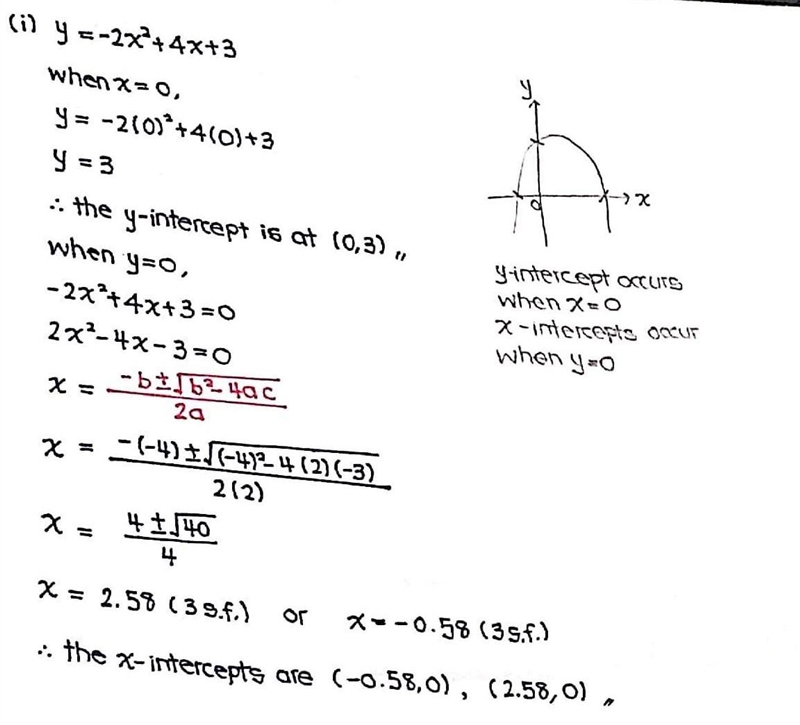 (i) y = -2x²+4x+3
when x = 0,
y = -2(0)²+4(0)+3
y = 3
∴ the y-intercept is at (0,3)„
when y=0,
-2x²+4x+3=0
2x²-4x-3=0
x = -b±√b²-4ac / 2a
x = -(-4)±√(-4)²-4(2)(-3) / 2(2)
x = 4±√40 / 4
x = 2.58 (3 s.f.) or x = -0.58 (3 s.f.)
∴ the x-intercepts are (-0.58,0), (2.58,0)„
y
x
0
y-intercept occurs
when x=0
x-intercepts occur
when y=0